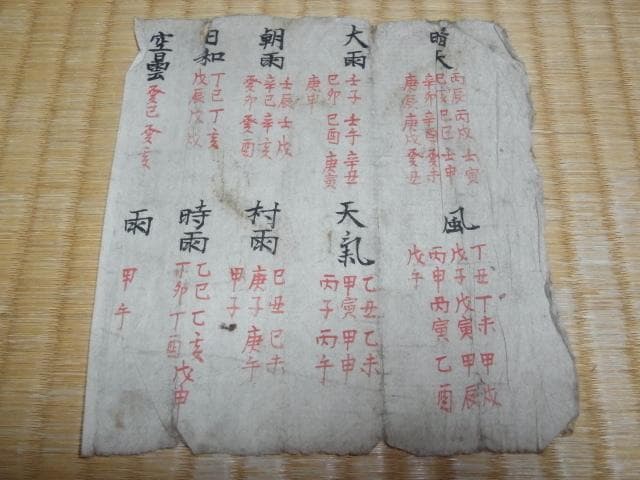 暗天
丙辰 丙戌 壬寅
己亥 己巳 壬申
辛卯 辛酉 癸未
庚辰 庚戌 癸丑
大雨
壬子 壬午 辛丑
己卯 己酉 庚寅
庚申
朝雨
壬辰 壬戌
辛巳 辛亥
癸卯 癸酉
日和
丁巳 丁亥
戊辰 戊戌
空曇
癸巳 癸亥
風
丁丑 丁未 甲戌
戊子 戊寅 甲辰
丙申 丙寅 乙酉
戊午
天氣
乙丑 乙未
甲寅 甲申
丙子 丙午
村雨
己丑 己未
庚子 庚午
甲子
時雨
乙巳 乙亥
丁卯 丁酉 戊申
雨
甲午